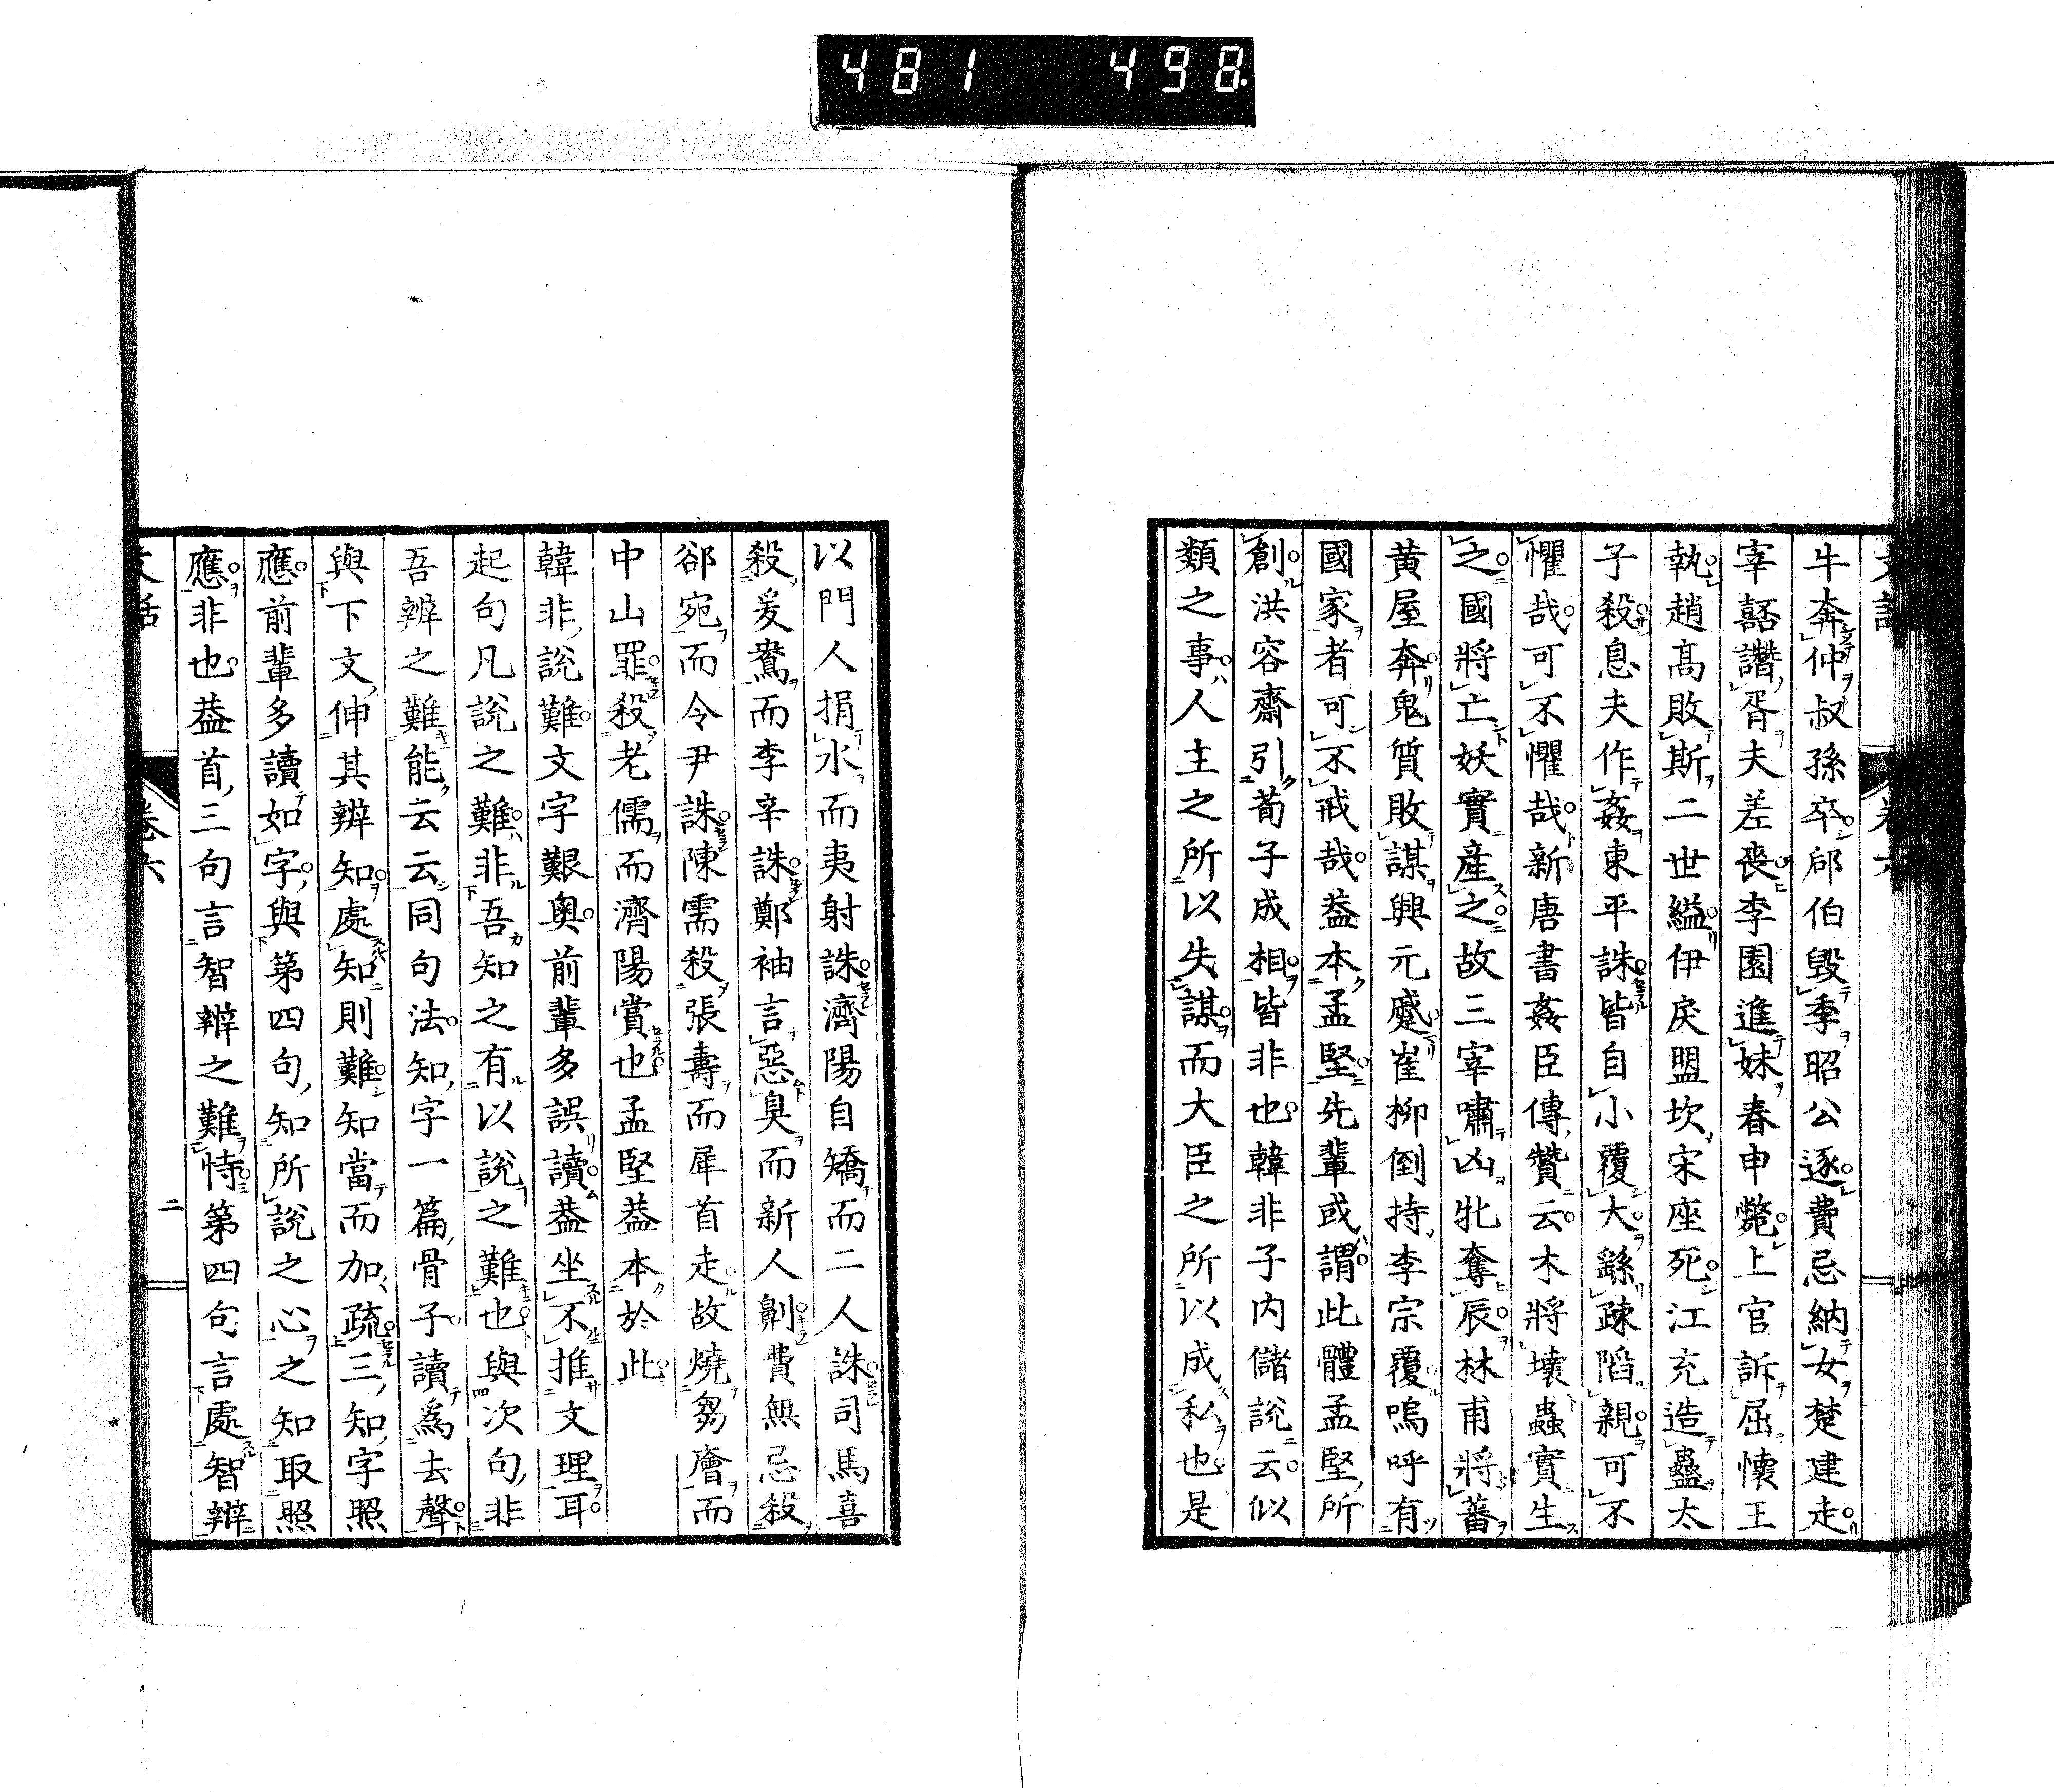 481 498
牛奔仲叔孫卒郈伯毀季昭公逐費忌納女楚建走
宰嚭讒胥夫差喪李園進妹春申斃上官訴屈懷王
執趙髙敗斯二世縊伊戾盟坎宋座死江充造蠱太
子殺息夫作姦東平誅皆自小覆大繇疎陷親可不
懼哉可不懼哉新唐書姦臣傳贊云木將壞蟲實生
之國將亡妖實產之故三宰嘯凶牝奪辰林甫將蕃
黄屋奔鬼質敗謀興元蹙崔柳倒持李宗覆嗚呼有
國家者可不戒哉葢本孟堅先輩或謂此體孟堅所
創洪容齋引荀子成相皆非也韓非子内儲說云似
類之事人主之所以失謀而大臣之所以成私也是
以門人捐水而夷射誅濟陽自矯而二人誅司馬喜
殺爰騫而李辛誅鄭袖言惡臭而新人劓費無忌殺
郤宛而令尹誅陳需殺張壽而犀首走故燒芻廥而
中山罪殺老儒而濟陽賞也孟堅葢本於此
韓非說難文字艱奥前輩多誤讀葢坐不推文理耳
起句凡說之難非吾知之有以說之難也與次句非
吾辨之難能云云同句法知字一篇骨子讀爲去聲
與下文伸其辨知處知則難知當而加疏三知字照
應前輩多讀如字與第四句知所說之心之知取照
應非也葢首三句言智辨之難恃第四句言處智辨
文話 卷六 二